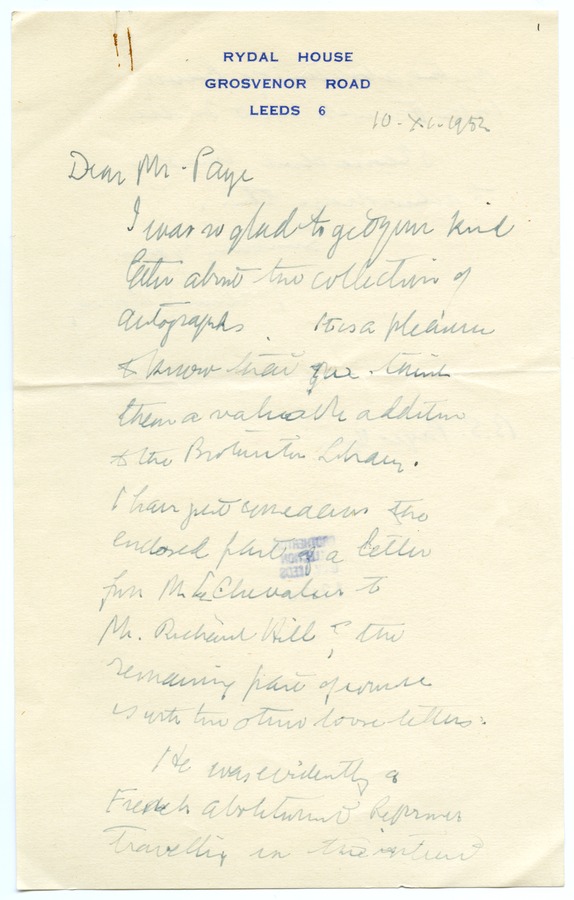 RYDAL HOUSE
GROSVENOR ROAD
LEEDS 6
10-XI-1952
Dear Mr. Page
I was so glad to get your kind
letter about the collection of
autographs. It is a pleasure
to know that you think
them a valuable addition
to the Brotherton Library.
I have just come across the
enclosed part of a letter
from M. Le Chevalier to
Mr. Richard Hill & the
remaining part of course
is with the other loose letters.
He was evidently a
French abolitionist Reformer
travelling in